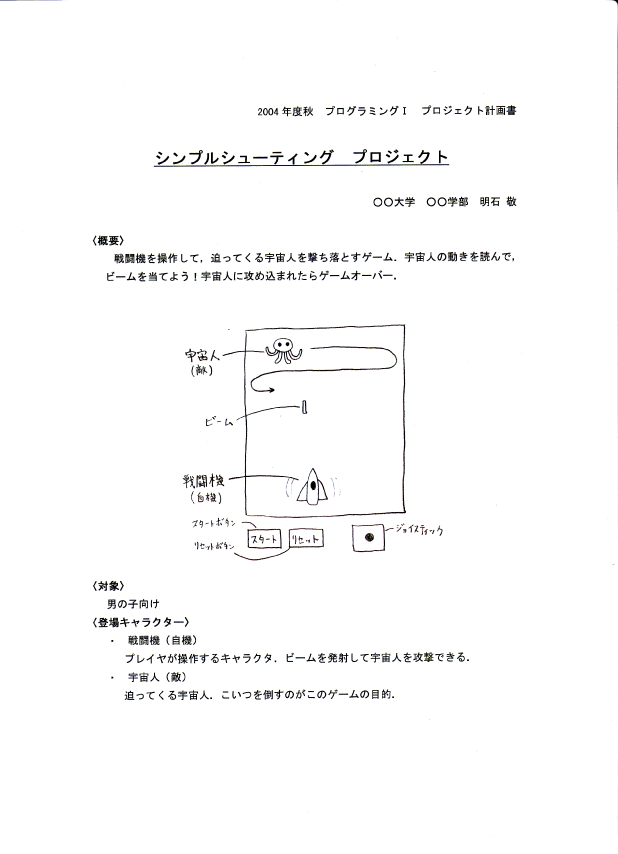 2004年度秋　プログラミングⅠ　プロジェクト計画書
シンプルシューティング　プロジェクト
〇〇大学　〇〇学部　明石 敬
〈概要〉
戦闘機を操作して，迫ってくる宇宙人を撃ち落とすゲーム．宇宙人の動きを読んで，
ビームを当てよう！宇宙人に攻め込まれたらゲームオーバー．
宇宙人
(敵)
ビーム
戦闘機
(自機)
スタートボタン
スタート
リセット
ジョイスティック
リセットボタン
〈対象〉
男の子向け
〈登場キャラクター〉
・　戦闘機（自機）
プレイヤが操作するキャラクタ．ビームを発射して宇宙人を攻撃できる．
・　宇宙人（敵）
迫ってくる宇宙人．こいつを倒すのがこのゲームの目的．